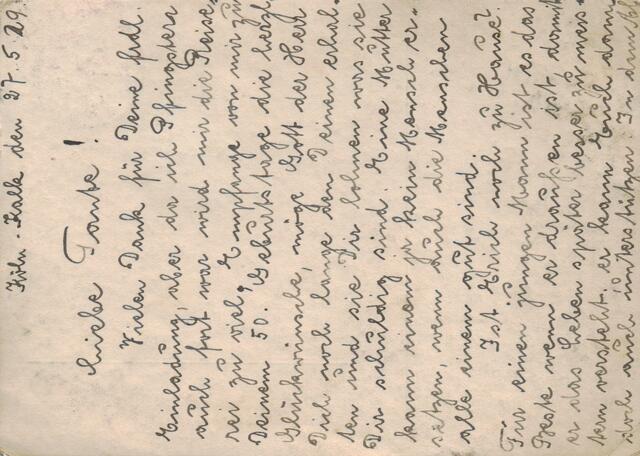 Köln-Kalk den 27.5.29.
Liebe Tante!
Vielen Dank für Deine frdl.
Einladung, aber da ich Pfingsten
auch fort war wird mir die Reise=
rei zu viel, Empfange von mir zu
Deinem 50. Geburtstage die herzl.
Glückwünsche, möge Gott der Herr
Dich noch lange den Deinen erhal-
ten und sie Dir lohnen was sie
Dir schuldig sind. Eine Mutter
kann einem ja kein Mensch er-
setzen, wenn auch die Menschen
alle einem gut sind.
Ist Erich noch zu Hause?
Für einen jungen Mann ist es das
Beste wenn er draußen ist damit
er das Leben später besser zu meis-
tern versteht. er kann Euch dann
doch auch unterstützen